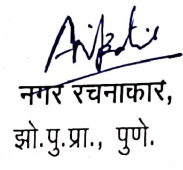 नगर रचनाकार,
झो.पु.प्रा., पुणे.